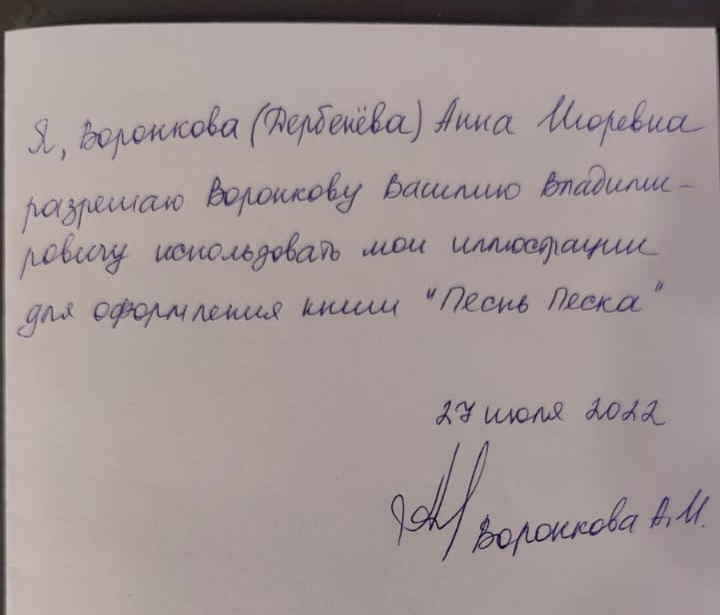 Я, Воронкова (Дербенёва) Анна Игоревна
разрешаю Воронкову Василию Владими-
ровичу использовать мои иллюстрации
для оформления книги "Песнь Песка"
27 июля 2022
Воронкова А.И.